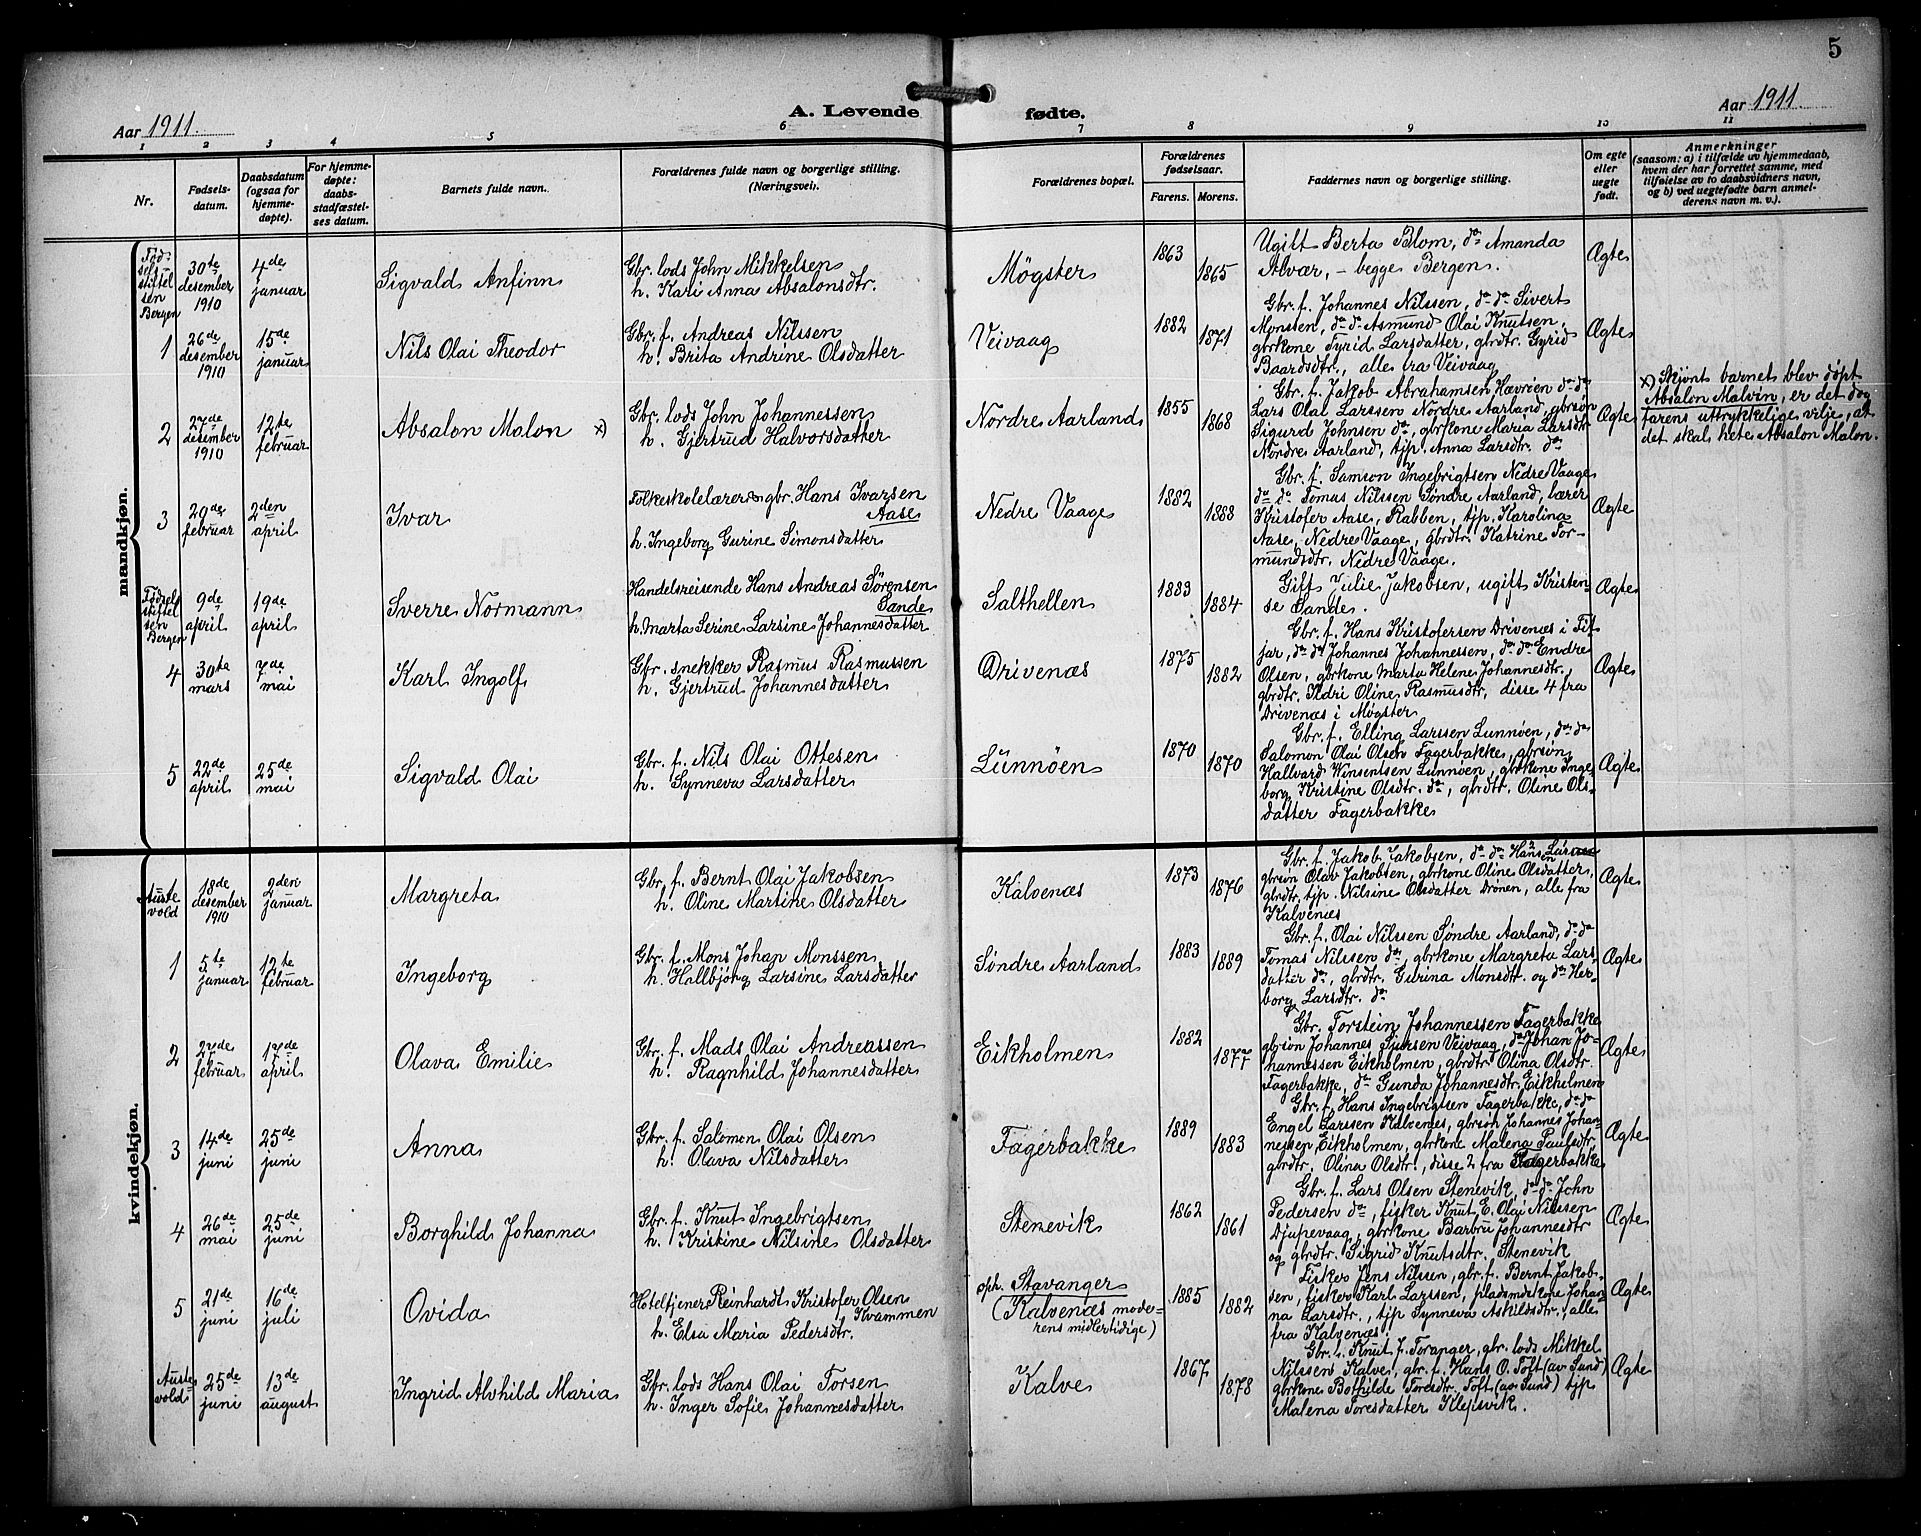 5
Aar 1911.
A. Levende fødte.
Aar 1911.
1 2 3 4 5 6 7 8 9 10 11
Nr.
Fødsels-
datum.
Daabsdatum
(ogsaa for
hjemme-
døpte).
For hjemme-
døpte:
daabs
stadfæstel-
ses datum.
Barnets fulde navn.
Forældrenes fulde navn og borgerlige stilling.
(Næringsvei).
Forældrenes bopæl.
Forældrenes
fødselsaar.
Farens. Morens.
Faddernes navn og borgerlige stilling.
Om egte
eller
uegte
født.
Anmerkninger
(saasom: a) i tilfælde av hjemmedaab,
hvem der har forrettet samme, med
tilføielse av to daabsvidners navn,
og b) ved uegtefødte barn anmel-
derens navn m. v.).
mandkjøn.
Fød
sels
stiftel
sen
Bergen
30te
desember
1910
4de
januar
Sigvald Anfinn
Gbr. lods John Mikkelsen
h. Kari Anna Absalonsdtr.
Møgster
1863
1865
Ugift Berta Blom, do Amanda
Alvær, – begge Bergen.
Ægte
1
26de
desember
1910
15de
januar
Nils Olai Theodor
Gbr. f. Andreas Nilssen
h. Brita Andrine Olsdatter
Veivaag
1882
1871
Gbr. f. Johannes Nilssen, do do Sivert
Monsen, do do Asmund Olai Knutsen,
gbrkone Tyrid Larsdatter, gbrdtr. Gyrid
Baardsdtr., alle fra Veivaag
Ægte
2
27de
desember
1910
12te
februar
Absalon Malon x)
Gbr. lods John Johannessen
h. Gjertrud Halvorsdatter
Nordre Aarland
1855
1868
Gbr. f. Jakob Abrahamsen Hævrøen do do
Lars Olai Larssen Nordre Aarland, gbrsøn
Sigurd Johnsen do, gbrkone Maria Larsdtr
Nordre Aarland, tjp. Anna Larsdtr. do
Ægte
x) Skjønt barnet blev døpt
Absalon Malvin, er det dog
farens uttrykkelige vilje, at
det skal hete Absalon Malon.
3
20de
februar
2den
april
Ivar
Folkeskolelærer og gbr. Hans Ivarsen
Aase
h. Ingeborg Gurine Simonsdatter
Nedre Vaage
1882
1888
Gbr. f. Samson Ingebrigtsen Nedre Vaage
do do Tomas Nilssen Søndre Aarland, lærer
Kristofer Aase, Rabben, tjp. Karolina
Aase, Nedre Vaage, gbrdtr. Katrine Tor-
mundsdtr. Nedre Vaage.
Ægte
Fødsels
stiftel
sen
Bergen
9de
april
19de
april
Sverre Normann
Handelsreisende Hans Andreas Sørensen
Sande
h. Marta Serine Larsine Johannesdatter
Salthellen
1883
1884
Gift Julie Jakobsen, ugift Kristen-
se Sande.
Ægte
4
30te
mars
7de
mai
Karl Ingolf
Gbr. snekker Rasmus Rasmussen
h. Gjertrud Johannesdatter
Drivenæs
1875
1882
Gbr. f. Hans Kristofersen Drivenæs i Fit
jar, do do Johannes Johannessen, do do Endre
Olsen, gbrkone Marta Helene Johannesdtr.,
gbrdtr. Ildri Oline Rasmusdtr, disse 4 fra
Drivenæs i Møgster
Ægte
5
22de
april
25de
mai
Sigvald Olai
Gbr. f. Nils Olai Ottesen
h. Synneva Larsdatter
Lunnøen
1870
1870
Gbr. f. Elling Larssen Lunnøen, do do
Salomon Olai Olsen Fagerbakke, gbrsøn
Hallvard Winsentsen Lunnøen, gbrkone Inge
borg Kristine Olsdtr. do, gbrdtr. Oline Ols-
datter Fagerbakke
Ægte
kvindekjøn.
Auste
vold
18de
desember
1910
2den
januar
Margreta
Gbr. f. Bernt Olai Jakobsen
h. Oline Martine Olsdatter
Kalvenæs
1873
1876
Gbr. f. Jakob Jakobsen, do do Hans Larssen
gbrsøn Olav Jakobsen, gbrkone Oline Olsdatter,
gbrdtr. tjp. Nilsine Olsdatter Drønen, alle fra
Kalvenæs
Ægte
1
5te
januar
12te
februar
Ingeborg
Gbr. f. Mons Johan Monssen
h. Hallbjørg Larsine Larsdatter
Søndre Aarland
1883
1889
Gbr. f. Olai Nilssen Søndre Aarland, do do
Tomas Nilssen do, gbrkone Margreta Lars-
datter do, gbrdtr. Gurina Monsdtr. og do Her-
borg Larsdtr. do
Ægte
2
27de
februar
17de
april
Olava Emilie
Gbr. f. Mads Olai Andreassen
h. Ragnhild Johannesdatter
Eikholmen
1882
1877
Gbr. Torstein Johannessen Fagerbakke
gbrsøn Johannes Sjursen Veivaag, do Johan Jo-
hannessen Eikholmen, gbrdtr Olina Olsdtr.
Fagerbakke, do Gunda Johannesdtr. Eikholmen
Ægte
3
14de
juni
25de
juni
Anna
Gbr. f. Salomon Olai Olsen
h. Olava Nilsdatter
Fagerbakke
1889
1883
Gbr. f. Hans Ingebrigtsen Fagerbakke, do do
Engel Larssen Kalvenes, gbrsøn Johannes Johan-
nessen Eikholmen, gbrkone Malena Paulsdtr.
gbrdtr. Olina Olsdtr., disse 2 fra Fagerbakke
Ægte
4
26de
mai
25de
juni
Borghild Johanna
Gbr. f. Knut Ingebrigtsen
h. Kristine Nilsine Olsdatter
Stenevik
1862
1861
Gbr. f. Lars Olsen Stenevik, do do John
Pedersen do, fisker Knut E. Olai Nilssen
Djupevaag, gbrkone Barbru Johannesdtr
og gbrdtr. Sigrid Knutsdtr. Stenevik
Ægte
5
21de
juni
16de
juli
Ovida
Hoteltjener Reinhardt Kristofer Olsen
Kvammen
h. Elsa Maria Pedersdtr.
oph. Stavanger
(Kalvenæs mode-
rens midlertidige)
1885
1882
Fisker Jens Nilssen, gbr. f. Bernt Jakob-
sen, fisker Karl Larssen, pladsmdskone Johan
na Larsdtr., tjp Synneva Askildsdtr., alle
fra Kalvenæs.
Ægte
Auste
vold
25de
juni
13de
august
Ingrid Alvhild Maria
Gbr. lods Hans Olai Torsen
h. Inger Sofie Johannesdatter
Kalve
1867
1878
Gbr. l. Knut J. Toranger, gbr. lods Mikkel
Nilssen Kalve, gbr. f. Hans O. Toft (av Sund)
gbrkone Bothilde Toresdtr. Toft (av Sund) tjp
Malena Toresdatter Klepsvik.
Ægte